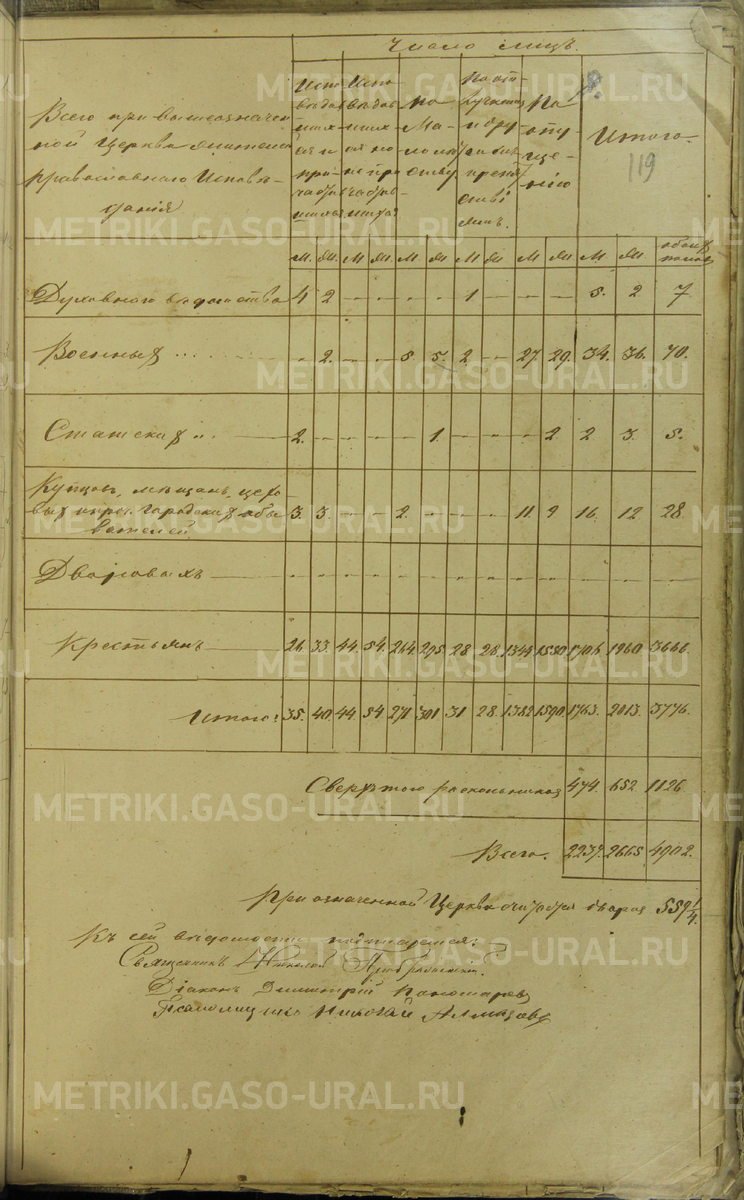 Число лицъ.
Всего при вышеозначен
ной Церкви жителей
православнаго Исповѣ
данія
Испо
вѣдав
шихъ
ся и
при
частив
шихся
Испо
вѣдав
шихъ
ся но
не при
частив
шихся
По
Ма
лолѣт
ству
По от
лучкамъ
и дру
гимъ
препят
стві
ямъ.
По
опу
ще
нію
Итого.
119
М. Ж. М Ж. М Ж М Ж. М Ж М Ж. обоихъ половъ
Духовнаго вѣдомства 4 2 – – – – 1 – – – 5. 2 7
Военныхъ . . . . 2. – – 5 5. 2 – 27 29. 34. 36. 70.
Статскихъ .. 2. – – – – 1. – – – 2 2 3. 5.
Купцовъ, мѣщанъ, цехо
выхъ и проч. городскихъ обы
вателей 3. 3. – – 2. – – – 11. 9 16. 12 28.
Дворовыхъ – – – – – – – – – – – – –
Крестьянъ 26. 33. 44. 54. 264. 295. 28 28. 1344 1550 1706. 1960 3666.
Итого: 35. 40. 44. 54 271 301 31 28. 1382 1590. 1763. 2013. 3776.
Сверхъ того раскольниковъ 474. 652 1126
Всего. 2237. 2665 4902.
При означенной Церкви считается дворовъ 559 1/4.
Къ сей вѣдомости
Священникъ
Діаконъ Димитрій Пономаревъ
Псаломщикъ Николай Алмазовъ
METRIKI.GASO-URAL.RU